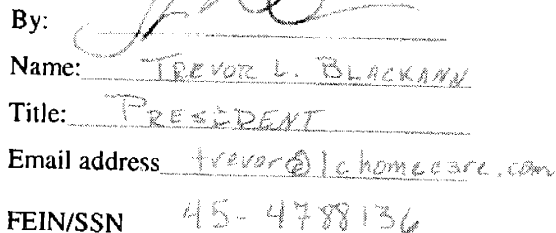 By:
Name: TREVOR L. BLACKANN
Title: PRESIDENT
Email address trevor@lchomecare.com
FEIN/SSN 45-4788136